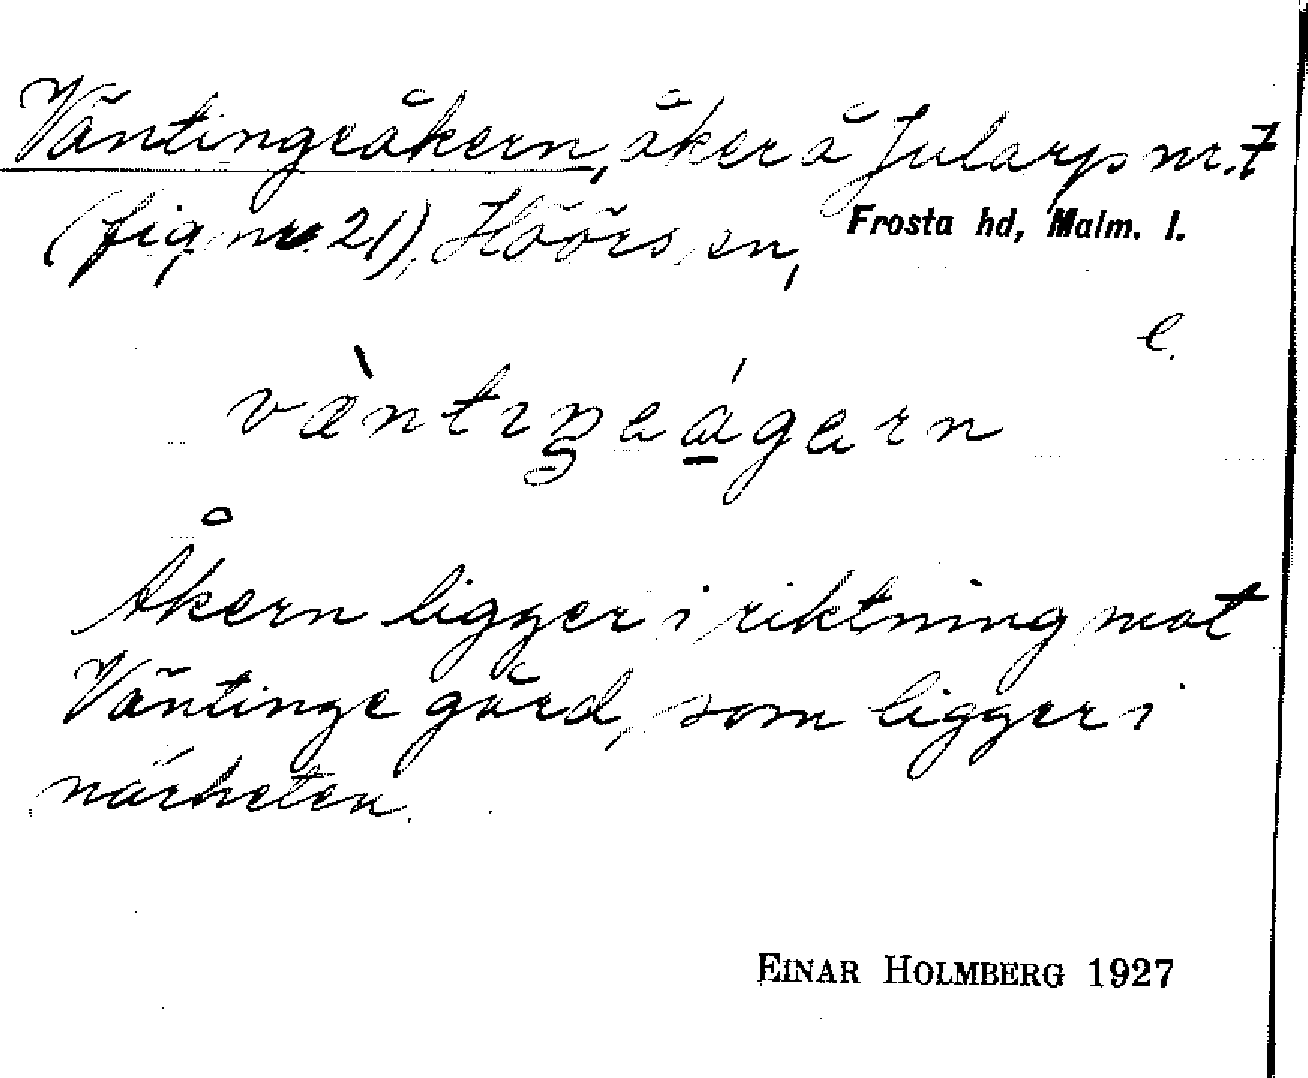 Väntingeåkern, åker å Jularp nr. 7
(fig. nr 21), Höörs sn, Frosta hd, Malm. l.
e.
væ̀ntıŋeágern
Åkern ligger i riktning mot
Väntinge gård, som ligger i
närheten.
EINAR HOLMBERG 1927